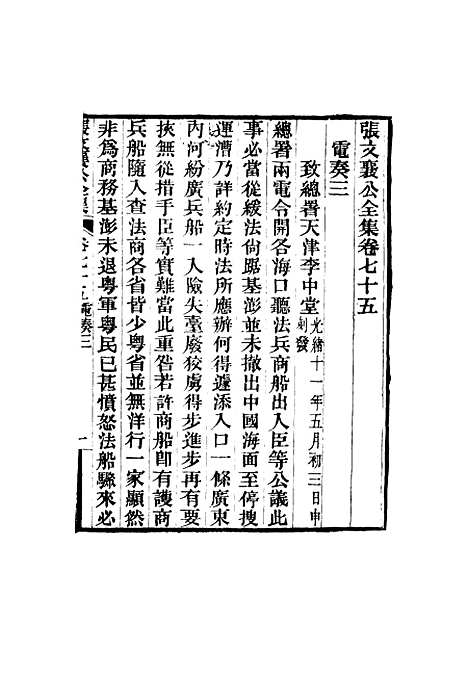 張文襄公全集卷七十五
電奏三
致總署天津李中堂光緒十一年五月初三日申刻發
總署兩電令開各海口聽法兵商船出入臣等公議此
事必當從緩法尙踞基澎並未撤出中國海面至停搜
運漕乃詳約定時法所應辦何得遽添入口一條廣東
內河紛廣兵船一入險失臺廢狡虜得步進步再有要
挾無從措手臣等實難當此重咎若許商船卽有護商
兵船隨入查法商各省皆少粵省並無洋行一家顯然
非爲商務基澎未退粵軍粵民已甚憤怒法船驟來必
張文襄公全集
卷七十五電奏三
一